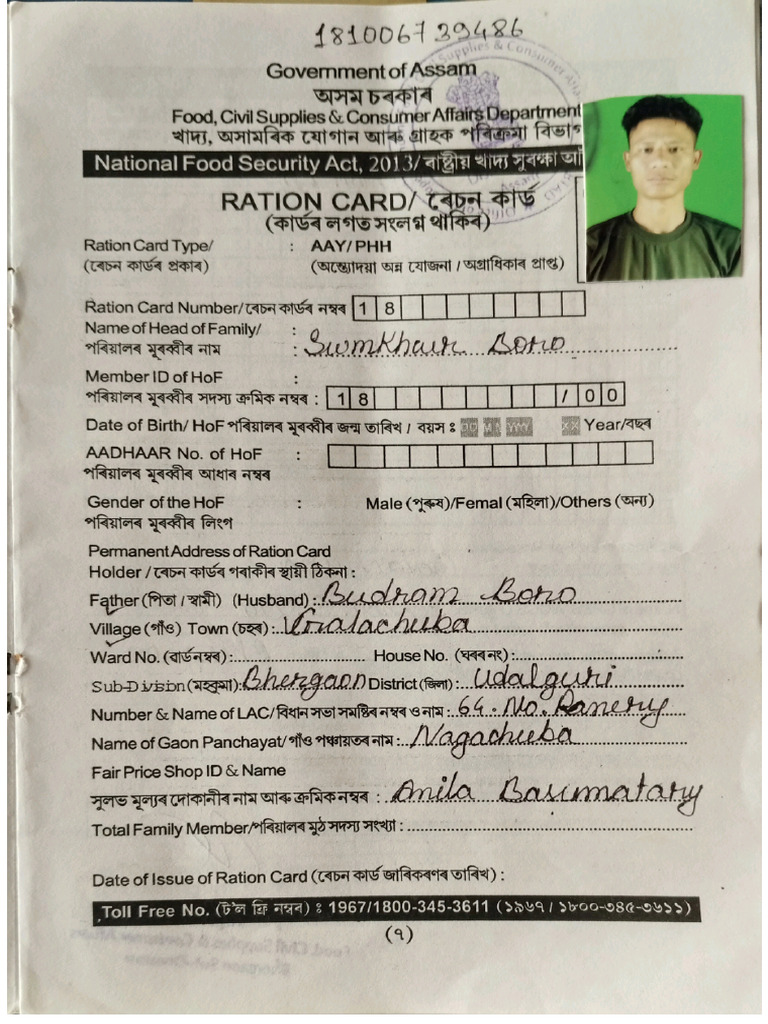 181006739486
Government of Assam
অসম চৰকাৰ
Food, Civil Supplies & Consumer Affairs Department
খাদ্য, অসামৰিক যোগান আৰু গ্ৰাহক পৰিক্ৰমা বিভাগ
National Food Security Act, 2013/ ৰাষ্ট্ৰীয় খাদ্য সুৰক্ষা আ
RATION CARD/ ৰেচন কাৰ্ড
(কাৰ্ডৰ লগত সংলগ্ন থাকিব)
Ration Card Type/ : AAY/ PHH
(ৰেচন কাৰ্ডৰ প্ৰকাৰ) (অন্ত্যোদয়া অন্ন যোজনা / অগ্ৰাধিকাৰ প্ৰাপ্ত)
Ration Card Number/ ৰেচন কাৰ্ডৰ নম্বৰ 1 8
Name of Head of Family/ :
পৰিয়ালৰ মূৰব্বীৰ নাম : Swmkhwur Boro
Member ID of HoF :
পৰিয়ালৰ মূৰব্বীৰ সদস্য ক্ৰমিক নম্বৰ : 1 8 / 0 0
Date of Birth/ HoF পৰিয়ালৰ মূৰব্বীৰ জন্ম তাৰিখ / বয়স : DD MM YYYY XX Year/বছৰ
AADHAAR No. of HoF :
পৰিয়ালৰ মূৰব্বীৰ আধাৰ নম্বৰ
Gender of the HoF : Male (পুৰুষ)/Femal (মহিলা)/Others (অন্য)
পৰিয়ালৰ মূৰব্বীৰ লিংগ
Permanent Address of Ration Card
Holder / ৰেচন কাৰ্ডৰ গৰাকীৰ স্থায়ী ঠিকনা :
Father (পিতা / স্বামী) (Husband) : Budram Boro
Village (গাঁও) Town (চহৰ) :
Ward No. (ৱাৰ্ডনম্বৰ): House No. (ঘৰৰ নং):
Sub-Division (মহকুমা): Bhergaon District (জিলা): Udalguri
Number & Name of LAC/ বিধান সভা সমষ্টিৰ নম্বৰ ও নাম : 64. No. Panery
Name of Gaon Panchayat/ গাঁও পঞ্চায়তৰ নাম : Nagachuba
Fair Price Shop ID & Name
সুলভ মূল্যৰ দোকানীৰ নাম আৰু ক্ৰমিক নম্বৰ : Anila Basumatary
Total Family Member/পৰিয়ালৰ মুঠ সদস্য সংখ্যা :
Date of Issue of Ration Card (ৰেচন কাৰ্ড জাৰিকৰণৰ তাৰিখ) :
Toll Free No. (ট'ল ফ্ৰি নম্বৰ) : 1967/1800-345-3611 (১৯৬৭ / ১৮০০-৩৪৫-৩৬১১)
(৭)